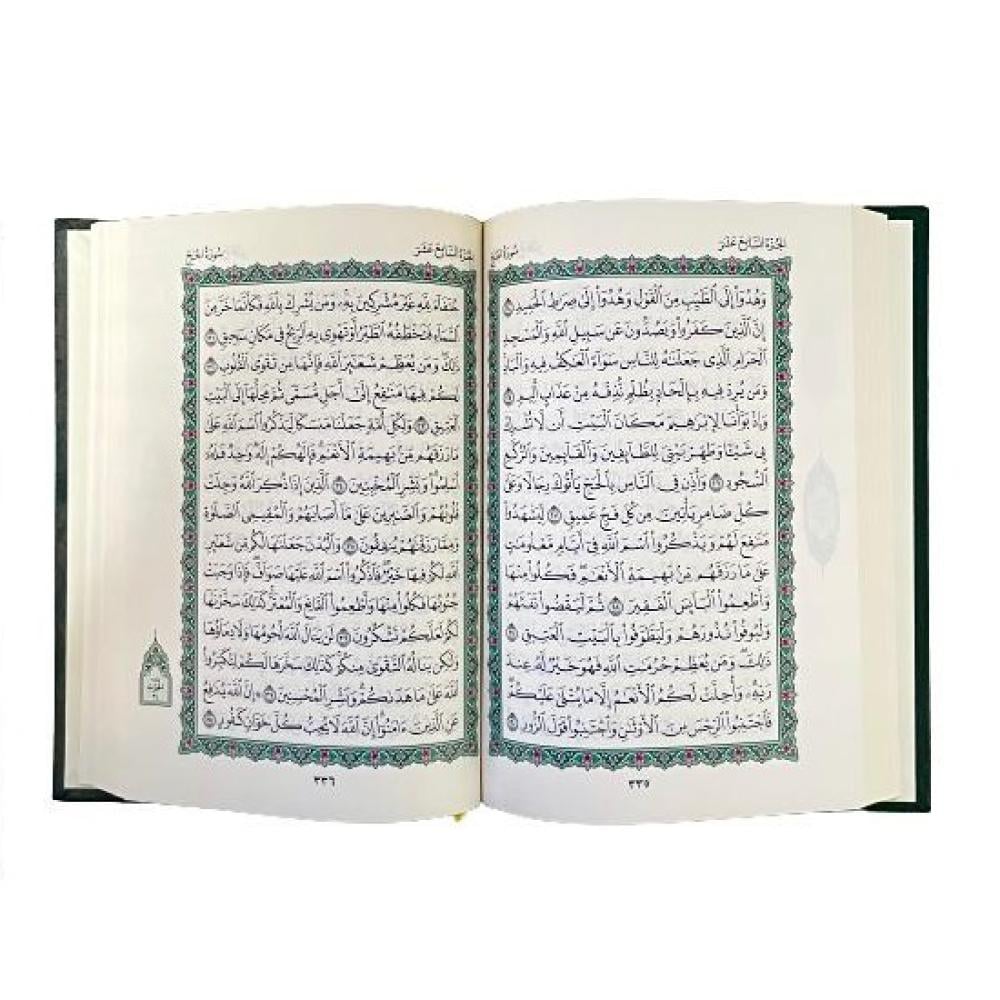 الجزء السابع عشر
سورة الحج
وَهُدُوٓا۟ إِلَى ٱلطَّيِّبِ مِنَ ٱلْقَوْلِ وَهُدُوٓا۟ إِلَىٰ صِرَٰطِ ٱلْحَمِيدِ ٢٤
إِنَّ ٱلَّذِينَ كَفَرُوا۟ وَيَصُدُّونَ عَن سَبِيلِ ٱللَّهِ وَٱلْمَسْجِدِ
ٱلْحَرَامِ ٱلَّذِى جَعَلْنَٰهُ لِلنَّاسِ سَوَآءً ٱلْعَٰكِفُ فِيهِ وَٱلْبَادِ
وَمَن يُرِدْ فِيهِ بِإِلْحَادٍۭ بِظُلْمٍ نُّذِقْهُ مِنْ عَذَابٍ أَلِيمٍ ٢٥
وَإِذْ بَوَّأْنَا لِإِبْرَٰهِيمَ مَكَانَ ٱلْبَيْتِ أَن لَّا تُشْرِكْ
بِى شَيْـًٔا وَطَهِّرْ بَيْتِىَ لِلطَّآئِفِينَ وَٱلْقَآئِمِينَ وَٱلرُّكَّعِ
ٱلسُّجُودِ ٢٦ وَأَذِّن فِى ٱلنَّاسِ بِٱلْحَجِّ يَأْتُوكَ رِجَالًا وَعَلَىٰ
كُلِّ ضَامِرٍ يَأْتِينَ مِن كُلِّ فَجٍّ عَمِيقٍ ٢٧ لِّيَشْهَدُوا۟
مَنَٰفِعَ لَهُمْ وَيَذْكُرُوا۟ ٱسْمَ ٱللَّهِ فِىٓ أَيَّامٍ مَّعْلُومَٰتٍ
عَلَىٰ مَا رَزَقَهُم مِّنۢ بَهِيمَةِ ٱلْأَنْعَٰمِ فَكُلُوا۟ مِنْهَا
وَأَطْعِمُوا۟ ٱلْبَآئِسَ ٱلْفَقِيرَ ٢٨ ثُمَّ لْيَقْضُوا۟ تَفَثَهُمْ
وَلْيُوفُوا۟ نُذُورَهُمْ وَلْيَطَّوَّفُوا۟ بِٱلْبَيْتِ ٱلْعَتِيقِ ٢٩
ذَٰلِكَ وَمَن يُعَظِّمْ حُرُمَٰتِ ٱللَّهِ فَهُوَ خَيْرٌ لَّهُۥ عِندَ
رَبِّهِۦ وَأُحِلَّتْ لَكُمُ ٱلْأَنْعَٰمُ إِلَّا مَا يُتْلَىٰ عَلَيْكُمْ
فَٱجْتَنِبُوا۟ ٱلرِّجْسَ مِنَ ٱلْأَوْثَٰنِ وَٱجْتَنِبُوا۟ قَوْلَ ٱلزُّورِ ٣٠
٣٣٥
الجزء السابع عشر
سورة الحج
حُنَفَآءَ لِلَّهِ غَيْرَ مُشْرِكِينَ بِهِۦ وَمَن يُشْرِكْ بِٱللَّهِ فَكَأَنَّمَا خَرَّ مِنَ
ٱلسَّمَآءِ فَتَخْطَفُهُ ٱلطَّيْرُ أَوْ تَهْوِى بِهِ ٱلرِّيحُ فِى مَكَانٍ سَحِيقٍ ٣١
ذَٰلِكَ وَمَن يُعَظِّمْ شَعَٰٓئِرَ ٱللَّهِ فَإِنَّهَا مِن تَقْوَى ٱلْقُلُوبِ ٣٢
لَكُمْ فِيهَا مَنَٰفِعُ إِلَىٰٓ أَجَلٍ مُّسَمًّى ثُمَّ مَحِلُّهَآ إِلَى ٱلْبَيْتِ
ٱلْعَتِيقِ ٣٣ وَلِكُلِّ أُمَّةٍ جَعَلْنَا مَنسَكًا لِّيَذْكُرُوا۟ ٱسْمَ ٱللَّهِ عَلَىٰ
مَا رَزَقَهُم مِّنۢ بَهِيمَةِ ٱلْأَنْعَٰمِ فَإِلَٰهُكُمْ إِلَٰهٌ وَٰحِدٌ فَلَهُۥٓ
أَسْلِمُوا۟ وَبَشِّرِ ٱلْمُخْبِتِينَ ٣٤ ٱلَّذِينَ إِذَا ذُكِرَ ٱللَّهُ وَجِلَتْ
قُلُوبُهُمْ وَٱلصَّٰبِرِينَ عَلَىٰ مَآ أَصَابَهُمْ وَٱلْمُقِيمِى ٱلصَّلَوٰةِ
وَمِمَّا رَزَقْنَٰهُمْ يُنفِقُونَ ٣٥ وَٱلْبُدْنَ جَعَلْنَٰهَا لَكُم مِّن شَعَٰٓئِرِ
ٱللَّهِ لَكُمْ فِيهَا خَيْرٌ فَٱذْكُرُوا۟ ٱسْمَ ٱللَّهِ عَلَيْهَا صَوَآفَّ فَإِذَا وَجَبَتْ
جُنُوبُهَا فَكُلُوا۟ مِنْهَا وَأَطْعِمُوا۟ ٱلْقَانِعَ وَٱلْمُعْتَرَّ كَذَٰلِكَ سَخَّرْنَٰهَا
لَكُمْ لَعَلَّكُمْ تَشْكُرُونَ ٣٦ لَن يَنَالَ ٱللَّهَ لُحُومُهَا وَلَا دِمَآؤُهَا
وَلَٰكِن يَنَالُهُ ٱلتَّقْوَىٰ مِنكُمْ كَذَٰلِكَ سَخَّرَهَا لَكُمْ لِتُكَبِّرُوا۟
ٱللَّهَ عَلَىٰ مَا هَدَىٰكُمْ وَبَشِّرِ ٱلْمُحْسِنِينَ ٣٧ ۞ إِنَّ ٱللَّهَ يُدَٰفِعُ
عَنِ ٱلَّذِينَ ءَامَنُوٓا۟ إِنَّ ٱللَّهَ لَا يُحِبُّ كُلَّ خَوَّانٍ كَفُورٍ ٣٨
٣٣٦